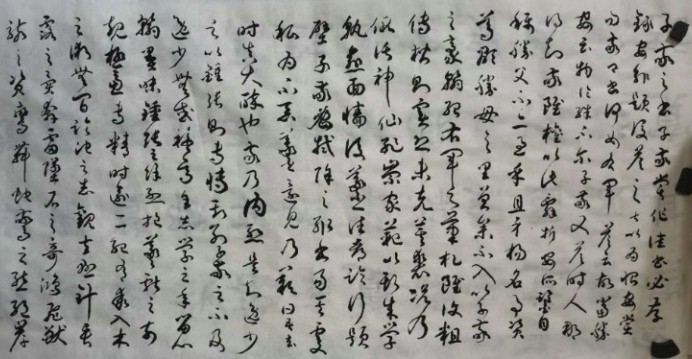 子敬之書子敬嘗作佳書必存
錄安輒題後答之甚以為恨安嘗
問敬卿書何如右軍答云故當勝
安云物論殊不爾子敬又答時人那
得知敬雖權以此辭折安所鑒自
稱勝父不亦過乎且立身揚名事資
尊顯勝母之里曾參不入以子敬
之豪翰紹右軍之筆札雖復粗
傳楷則實恐未克箕裘況乃
假託神仙恥崇家範以斯成學
孰愈面牆後羲之往都臨行題
壁子敬密拭除之輒書易其處
私為不惡羲之還見乃歎曰吾去
時真大醉也敬乃內慚是知逸少
之比鍾張則專博斯別子敬之不及
逸少無或疑焉余志學之年留心
翰墨味鍾張之餘烈挹羲獻之前
規極慮專精時逾二紀有乖入木
之術無間臨池之志觀夫懸針垂
露之異奔雷墜石之奇鴻飛獸
駭之資鸞舞蛇驚之態絕岸